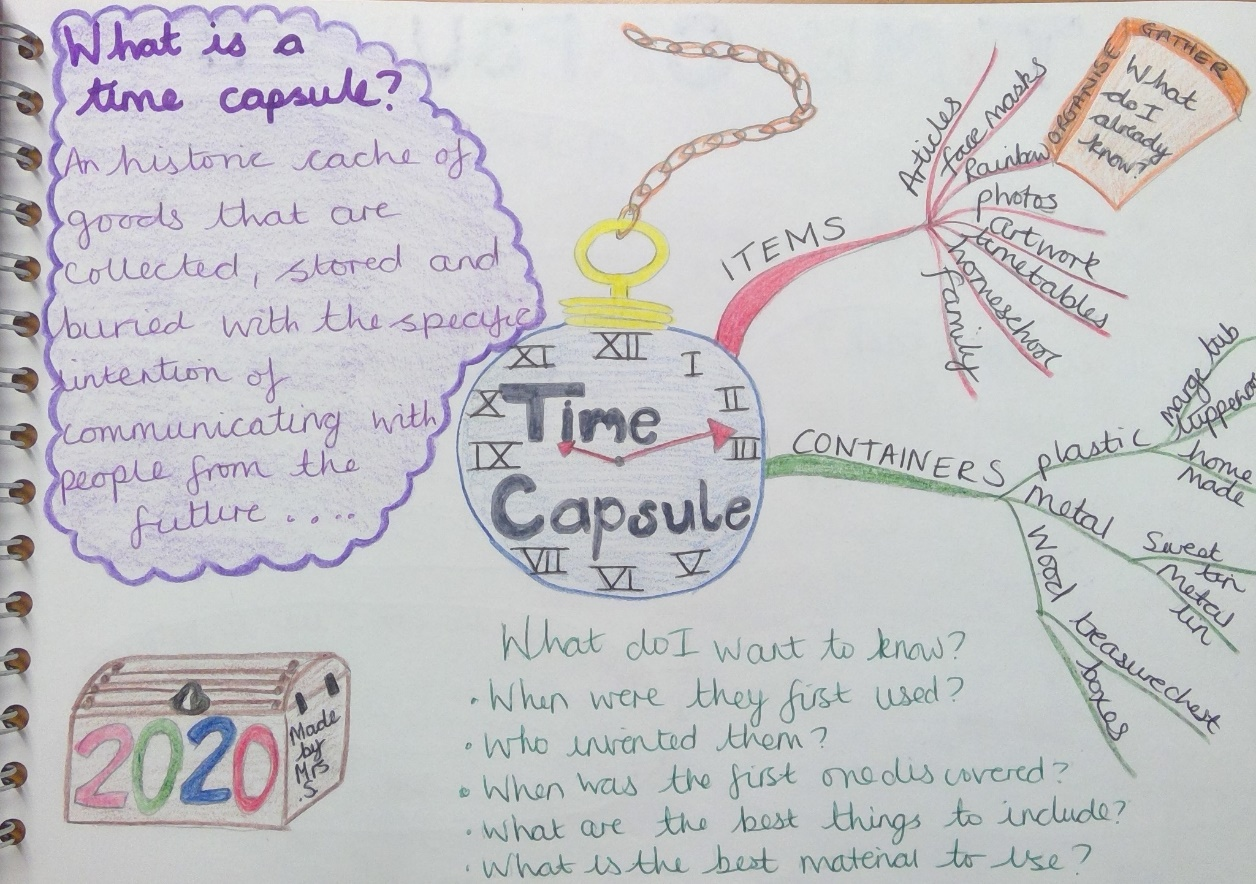 What is a
time capsule?
An historic cache of
goods that are
collected, stored and
buried with the specific
intention of
communicating with
people from the
future ....
XII
I
II
III
V
VI
VII
IX
X
XI
Time
Capsule
ITEMS
Articles
face masks
Rainbow
photos
artwork
timetables
homeschool
family
ORGANISE
GATHER
What
do I
already
know?
CONTAINERS
plastic
marge tub
tupperwa
home
made
metal
Sweet
tin
Metal
tin
Wood
treasure chest
boxes
2020
Made
by
Mrs
S.
What do I want to know?
• When were they first used?
• Who invented them?
• When was the first one discovered?
• What are the best things to include?
• What is the best material to use?